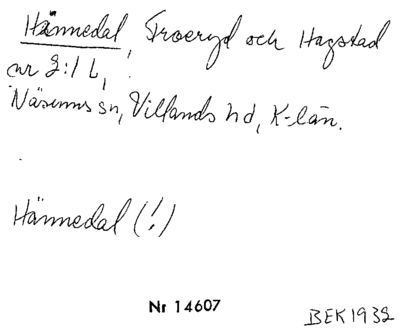 Hännedal, Froeryd och Hagstad
nr 2:1 L,
Näsums sn, Villands hd, K-län.
Hännedal (!)
Nr 14607
BEK 1932